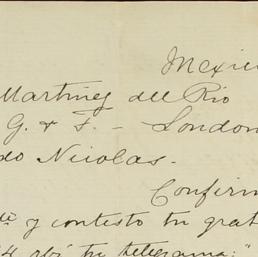 Mexic
Martinez del Rio
G. & F. - London
do Nicolas.
Confirm
y contesto tu grat
4 rbí tu telegrama: "